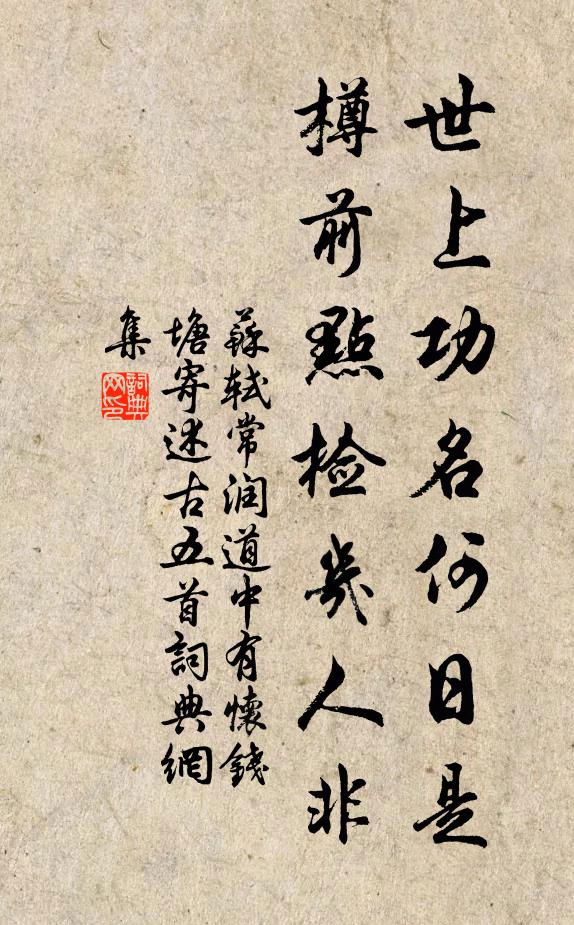 世上功名何日是
樽前點检幾人非
蘇轼常润道中有懷錢
塘寄述古五首詞典網
集
詞典网印